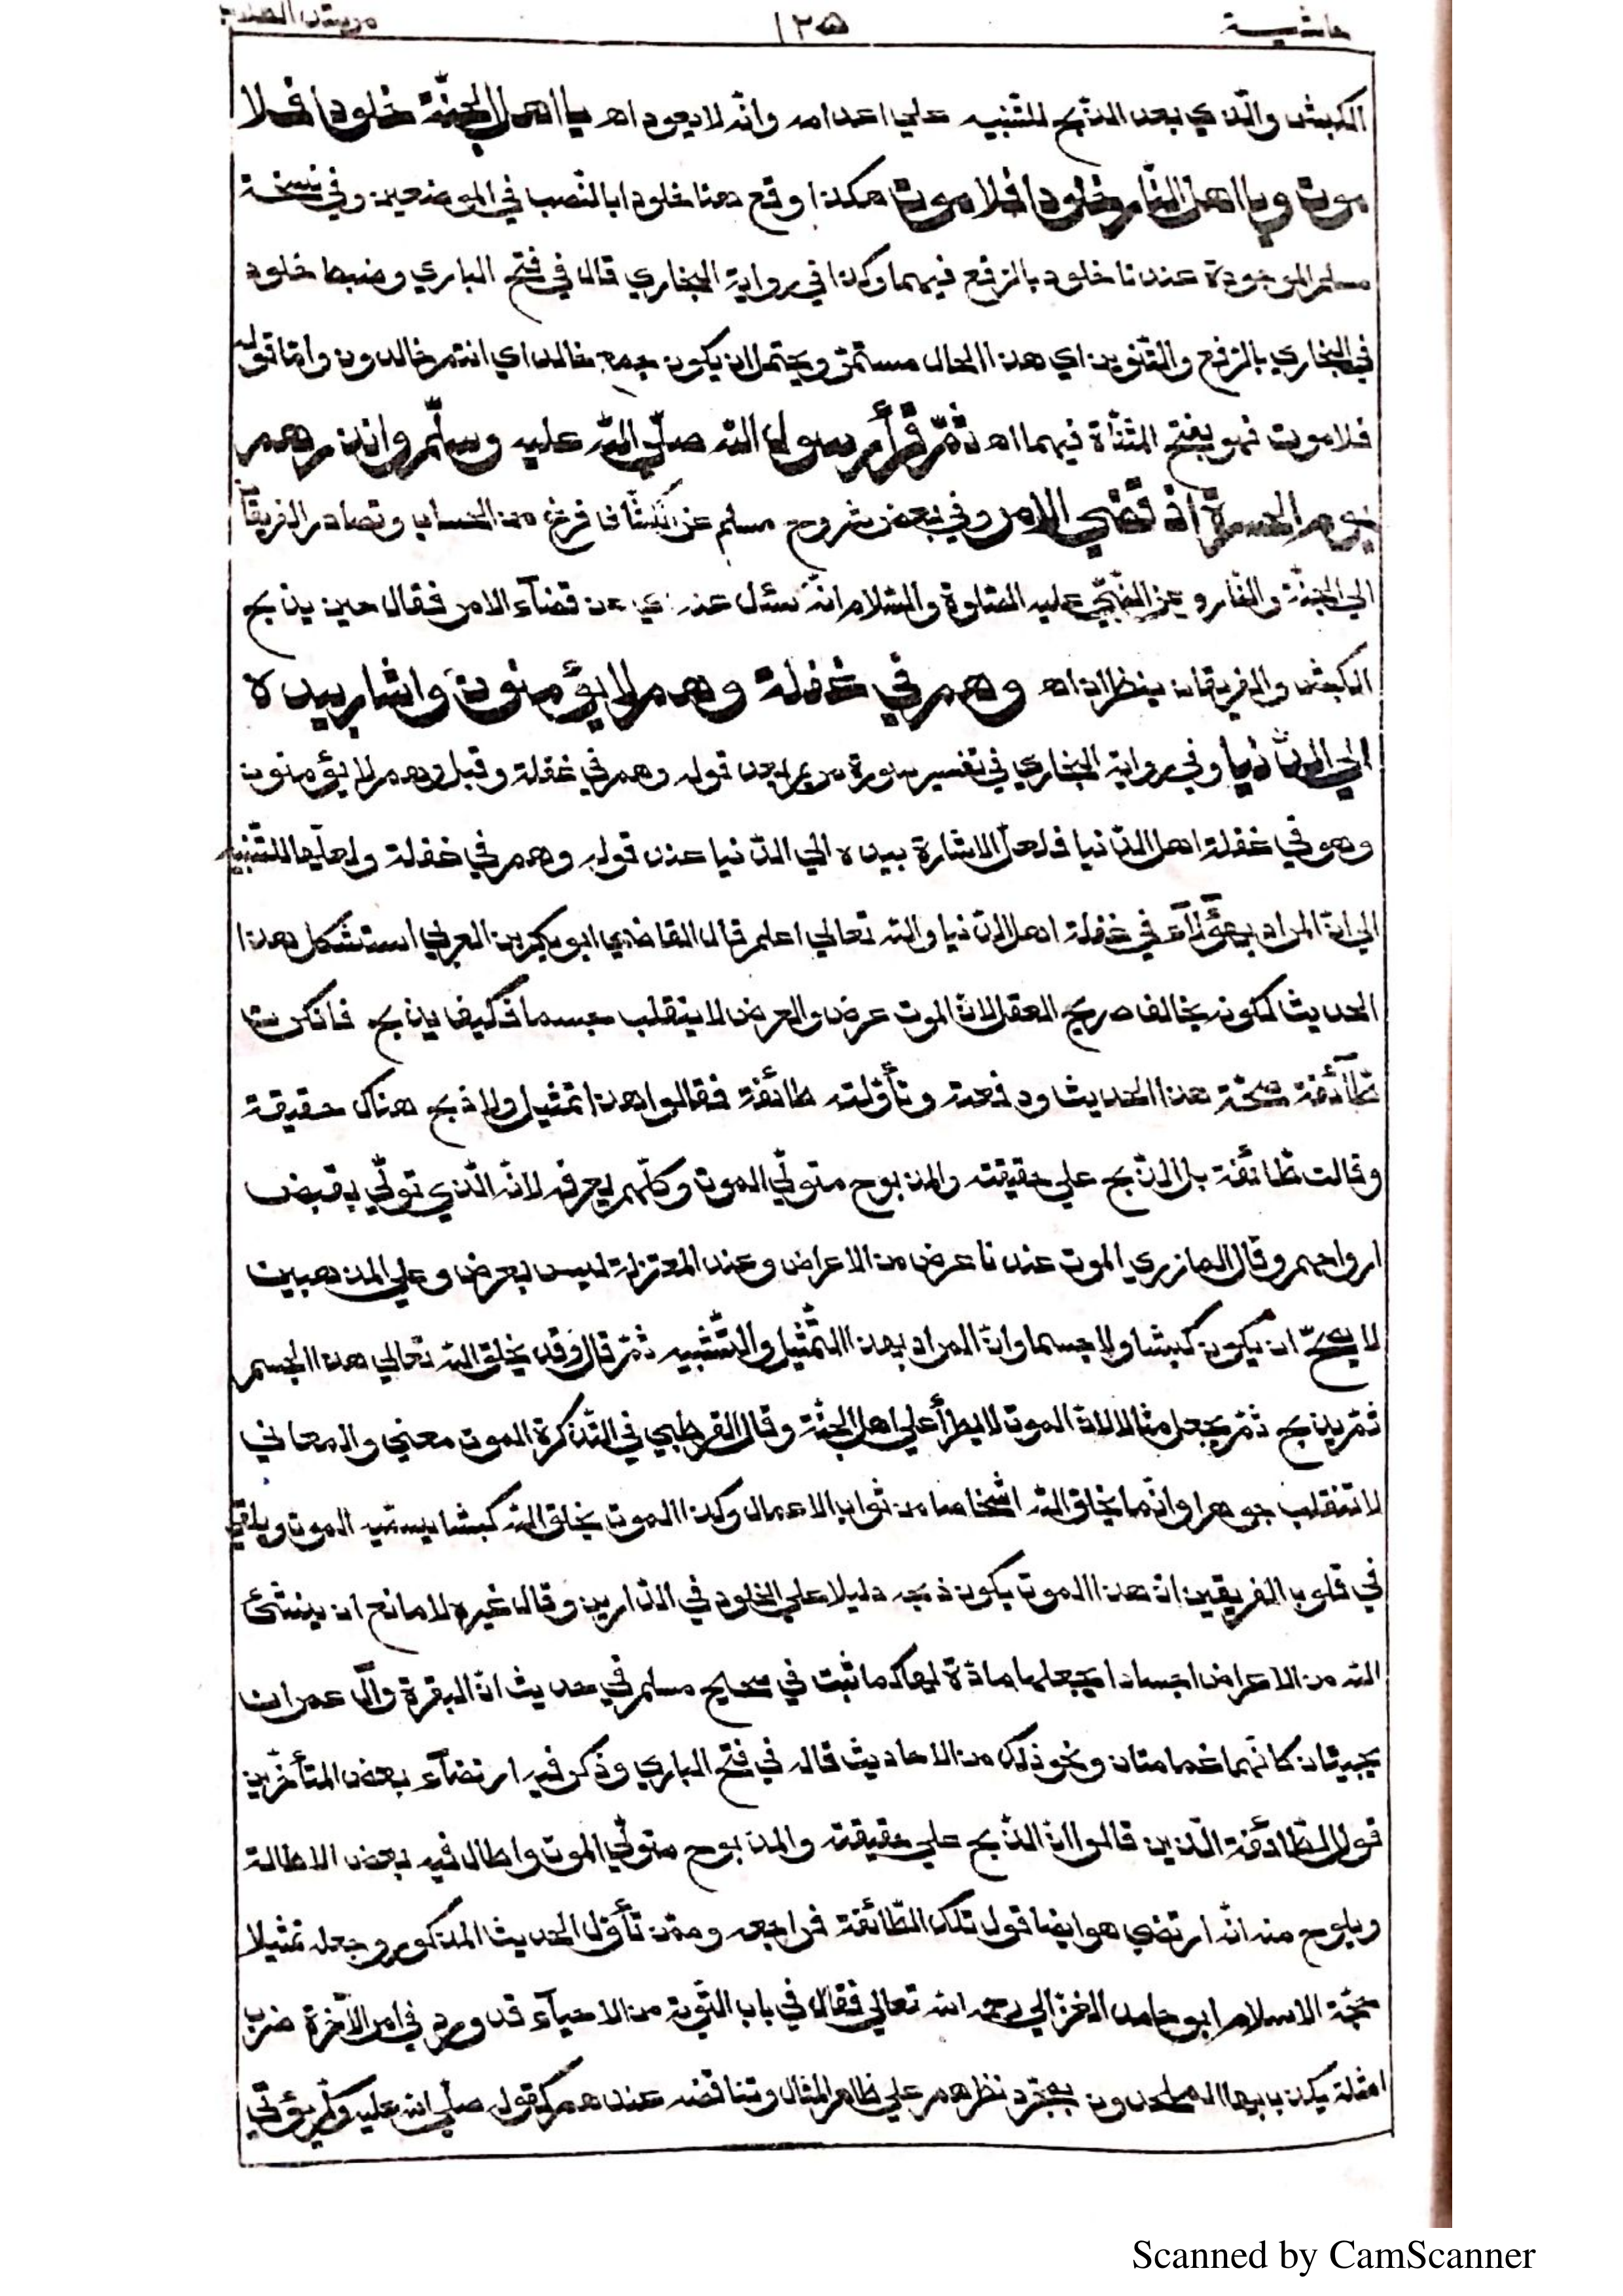 حاشية ١٢٥
الكبش والذي بعد الذبح للتنبيه علي اعدامه وانه لا يعود اه يا اهل الجنّة خلودا فلا
موت ويا اهل النار خلودا فلا موت هكذا وقع هنا خلودا بالنّصب في الموضعين وفي نسخة
مسلم الموجودة عندنا خلود بالرّفع فيهما وكذا في رواية البخاري قال في فتح الباري وضبط خلود
في البخاري بالرّفع والتّنوين اي هذا الحال مستمرّ ويحتمل ان يكون جمع خالد اي انتم خالدون وامّا قوله
فلا موت فهو بفتح المثنّاة فيهما اه ثمّ قرأ رسول الله صلّي الله عليه وسلّم وانذرهم
يوم الحسرة اذ قضي الامر وفي بعض شروح مسلم عن الكشّاف فرغ من الحساب وتصادر الفريقا
الي الجنّة والنّار وعن النّبيّ عليه الصّلوة والسّلام انّه سئل عنه اي عن قضآء الامر فقال حين يذبح
الكبش والفريقان ينظران اه وهم في غفلة وهم لا يؤمنون واشار بيده
الي الدّنيا وفي رواية البخاري في تفسير سورة مريم بعد قوله وهم في غفلة وقبل وهم لا يؤمنون
وهو في غفلة اهل الدّنيا فلعلّ الاشارة بيده الي الدّنيا عند قوله وهم في غفلة ولعلّها للتّنبيه
الي انّ المراد بهؤلآء في غفلة اهل الدّنيا والله تعالي اعلم قال القاضي ابو بكر بن العربي استشكل هذا
الحديث لكونه يخالف صريح العقل لانّ الموت عرض والعرض لا ينقلب جسما فكيف يذبح فانكرت
طآئفة صحّة هذا الحديث ودفعته وتأوّلته طائفة فقالوا هذا تمثيل ولا ذبح هناك حقيقة
وقالت طّائفة بل الذّبح علي حقيقته والمذبوح متولّي الموت وكلّهم يعرفه لانّه الّذي تولّي بقبض
ارواحهم وقال المازري الموت عندنا عرض من الاعراض وعند المعتزلة ليس بعرض وعلي المذهبين
لا يصحّ ان يكون كبشا ولا جسما وانّ المراد بهذا التّمثيل والتّشبيه ثمّ قال وقد يخلق الله تعالي هذا الجسم
ثمّ يذبح ثمّ يجعل مثالا لانّ الموت لا يطرأ علي اهل الجنّة وقال القرطبي في التّذكرة الموت معني والمعاني
لا تنقلب جوهرا وانّما يخلق الله اشخاصا من ثواب الاعمال وكذا الموت يخلق الله كبشا يسمّيه الموت ويلقي
في قلوب الفريقين انّ هذا الموت يكون ذبحه دليلا علي الخلود في الدّارين وقال غيره لا مانع ان ينشئ
الله من الاعراض اجسادا يجعلها مادّة لها كما ثبت في صحيح مسلم في حديث انّ البقرة وآل عمران
يجيئان كانّهما غمامتان ونحو ذلك من الاحاديث قاله في فتح الباري وذكر فيه ارتضآء بعض المتأخّرين
قول الطّائفة الّذين قالوا انّ الذّبح علي حقيقته والمذبوح متولّي الموت واطال فيه بعض الاطالة
ويلوح منه انّه ارتضي هو ايضا قول تلك الطّائفة فراجعه وممّن تأوّل الحديث المذكور وجعله تمثيلا
حجّة الاسلام ابو حامد الغزالي رحمه الله تعالي فقال في باب التّوبة من الاحيآء قد ورد في امر الآخرة ضرب
امثلة يكذب بها الملحدون بمجرّد نظرهم علي ظاهر المثال وتناقضه عندهم كقوله صلّي الله عليه وسلّم يؤتي
Scanned by CamScanner